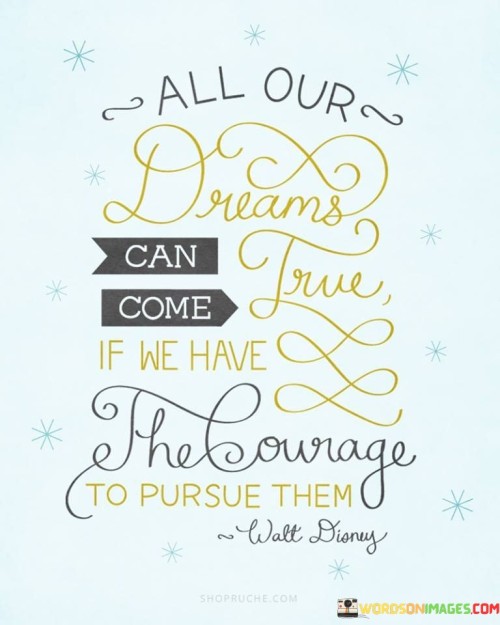 ALL OUR
Dreams
CAN
COME
True,
IF WE HAVE
The Courage
TO PURSUE THEM
~Walt Disney
SHOPRUCHE.COM
WORDSONIMAGES.COM